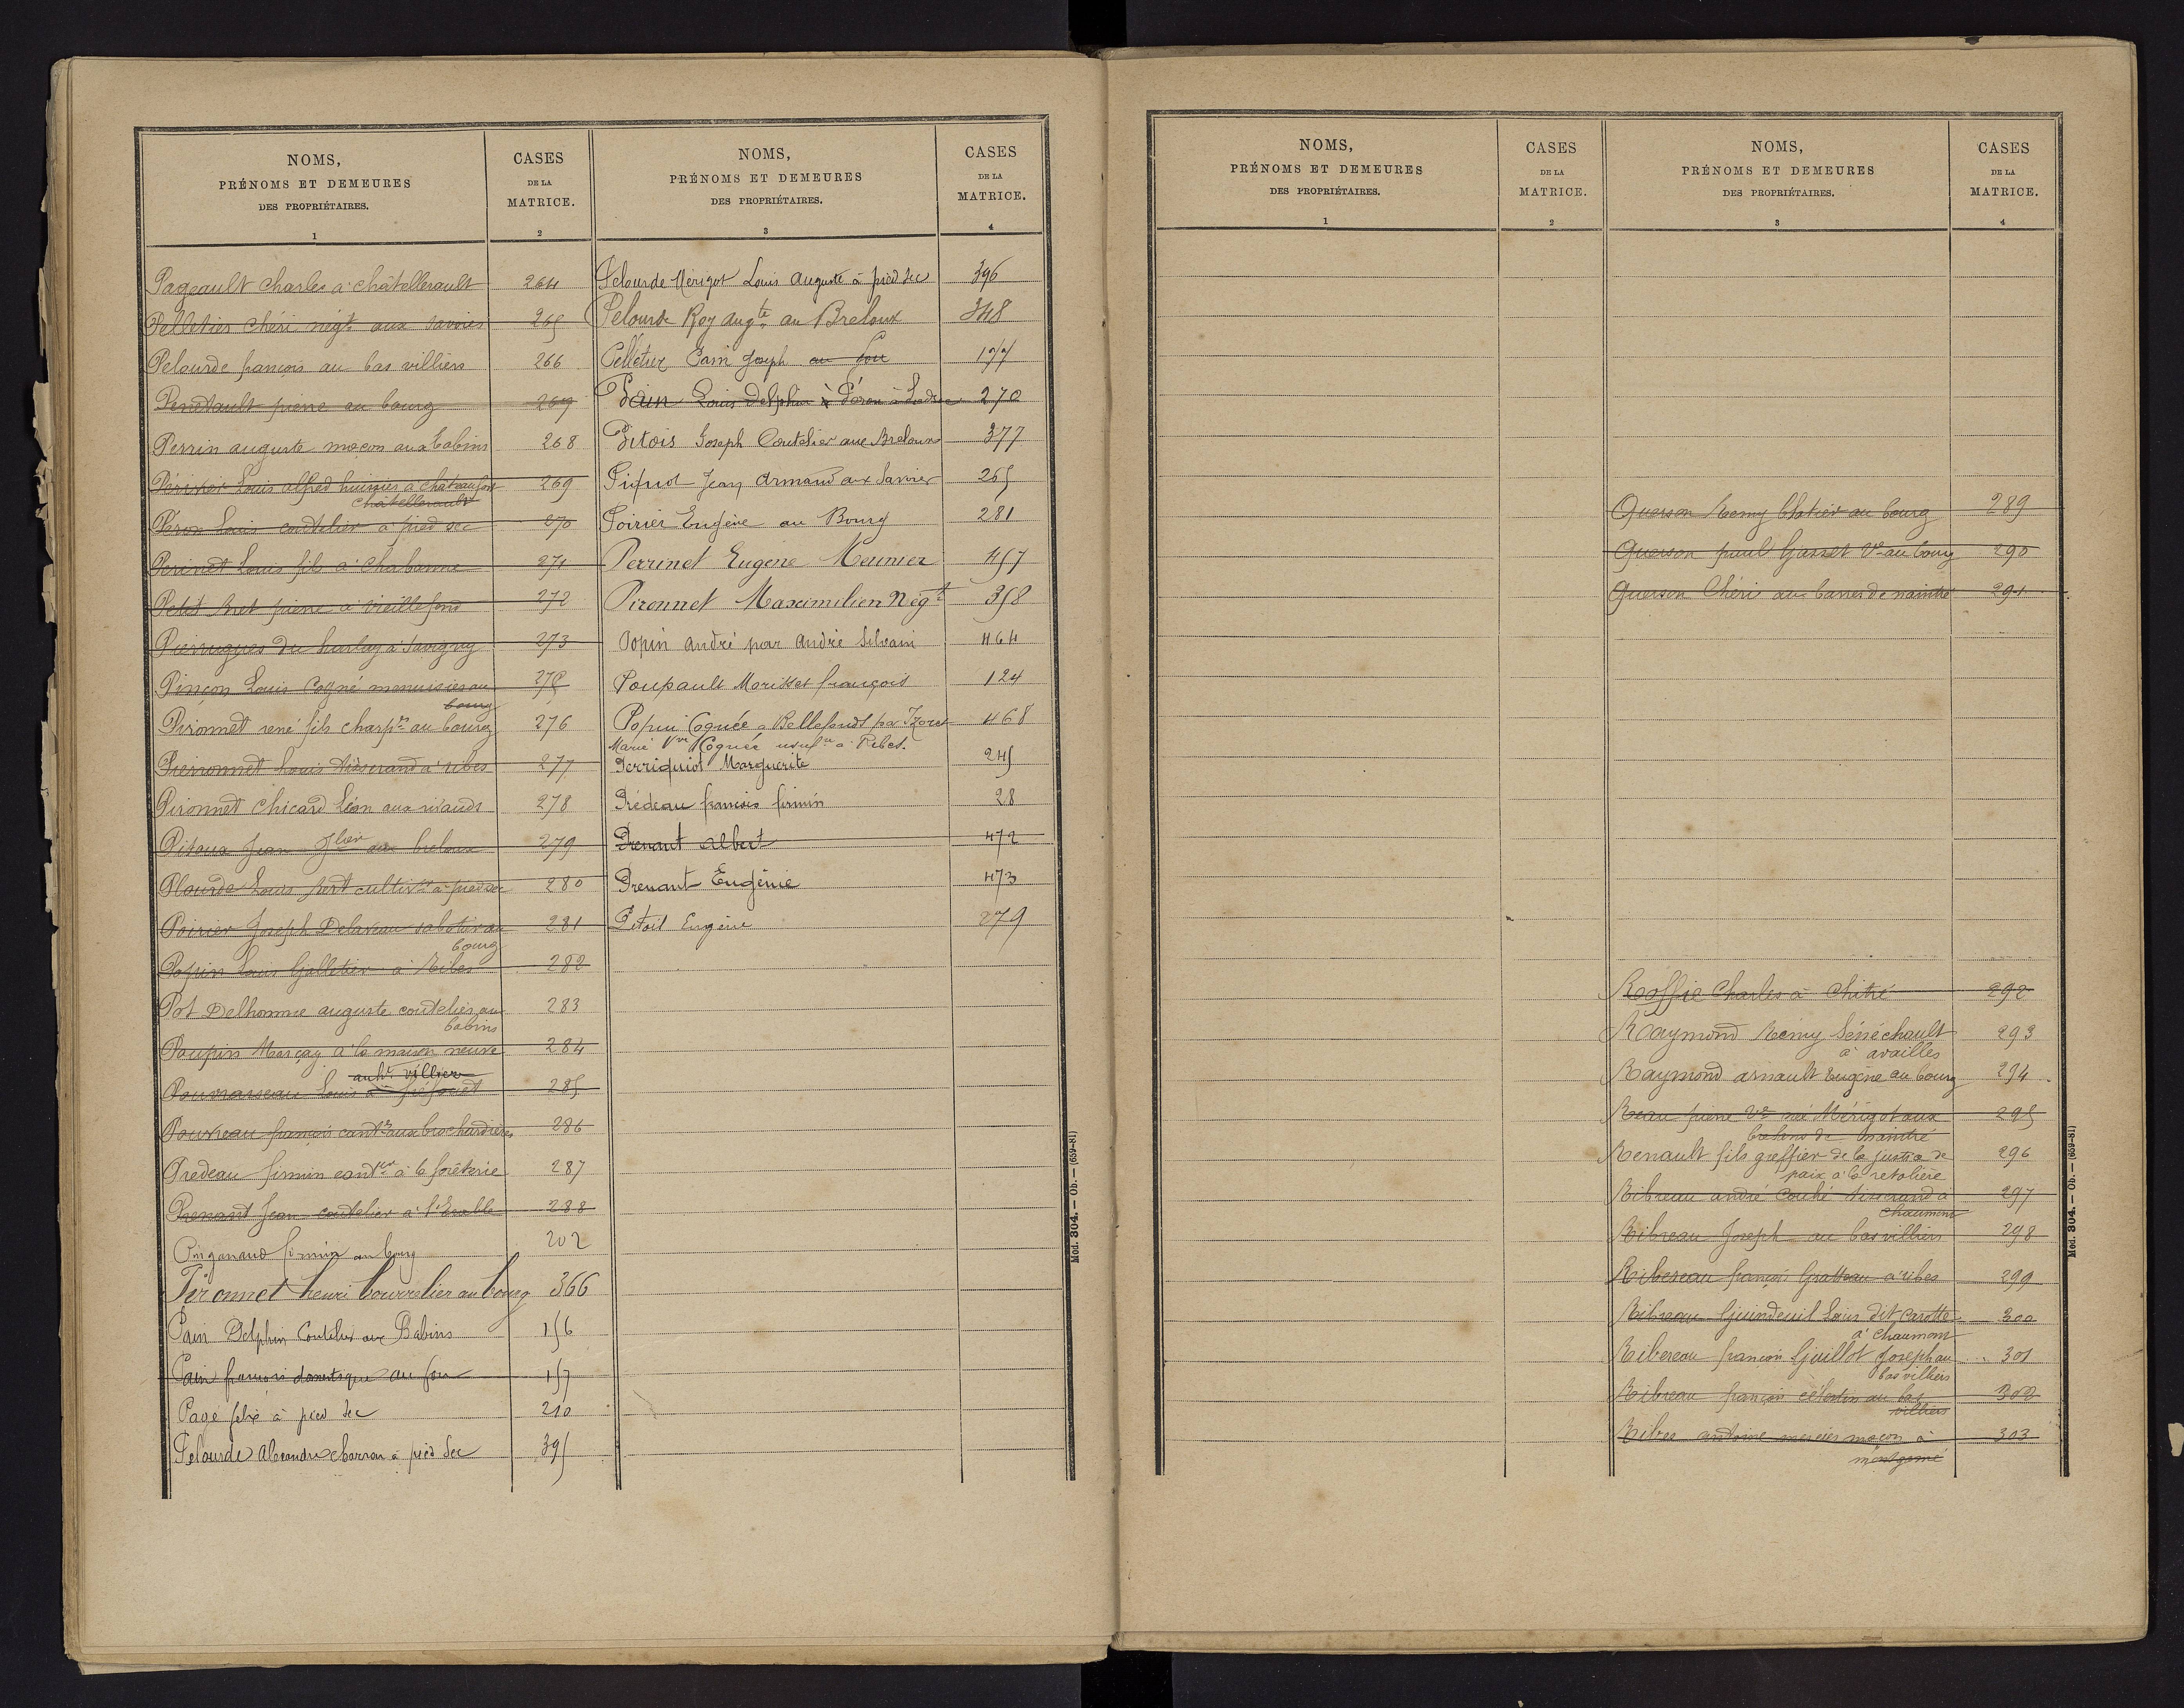 NOMS,
PRÉNOMS ET DEMEURES
DES PROPRIÉTAIRES.
1
CASES
DE LA
MATRICE.
2
Pageault Charles à Châtellerault 264
Pelletier Chéri négt aux Savries 265
Pelourde françois au bas villiers 266
pierre au bourg 267
Perrin auguste maçon aux babins 268
Périvier Louis alfred huissier à châteaufort 269
Châtellerault
Péron Louis coutelier à pied sec 270
Périnet Louis fils à Chabanne 271
Petit pierre à vieillefond 272
Pierrugues du harlay à Savigny 273
Pinçon Louis Cogné menuisier au 275
bourg
Pironnet rené fils charptr au bourg 276
Pironnet Louis tisserand à ribes 277
Pironnet Chicard Léon aux rivauds 278
Pitoux Jean aux breloux 279
Plourde Louis cultivr à pied sec 280
Poirier Joseph Delaveau sabotier au 281
bourg
Popin Louis Galletier à Ribes 282
Pot Delhomme auguste coutelier au 283
babins
Poupin Marçay à la maison neuve 284
auht villier
Pouvrasseau Louis à 285
Pouvreau françois cantr aux brochardières 286
Predeau firmin cantr à la forêterie 287
Prenant Jean coutelier à l'Érable 288
Pinganaud firmin au bourg 202
Pironnet henri bourrelier au bourg 366
Pain Delphin Coutelier aux Babins 156
Pain françois domestique au fou 157
Page felix à pied sec 210
Pelourde Alexandre charron à pied sec 395
NOMS,
PRÉNOMS ET DEMEURES
DES PROPRIÉTAIRES.
3
CASES
DE LA
MATRICE.
4
Pelourde Mérigot Louis Auguste à pied sec 396
Pelourde Roy augte au Breloux 348
Pelletier Cain Joseph au fou 177
Pain Louis Delphin à Péron à 270
Pitois Joseph Coutelier aux Breloux 377
Piquot Jean Armand aux Savries 265
Poirier Eugène au Bourg 281
Perrinet Eugene Meunier 457
Pironnet Maximilien Négt 358
Popin André par André Silvain 464
Poupault Morisset françois 124
Popin Coguée à Bellefonds par Izoret 468
Marie Vve Coguée usufre à Ribes.
Perriquiot Marguerite 245
Prédeau françois firmin 28
Prenant Albert 472
Prenant Eugénie 473
Pitois Eugène 279
Mod. 304. — Ob. — (659-81)
NOMS,
PRÉNOMS ET DEMEURES
DES PROPRIÉTAIRES.
1
CASES
DE LA
MATRICE.
2
NOMS,
PRÉNOMS ET DEMEURES
DES PROPRIÉTAIRES.
3
CASES
DE LA
MATRICE.
4
Querson Remy au bourg 289
Querson paul Gasset Ve au bourg 290
Querson Chéri aux barres de naintré 291
Raffié Charles à Chitré 292
Raymond Rémy Sénéchault 293
à availles
Raymond arnault Eugène au bourg 294
Reau pierre Ve née Mérigot aux 295
de naintré
Renault fils greffier de la justice de 296
paix à la retolière
Ribreau andré Couhé tisserand à 297
Chaumont
Ribreau Joseph au bas villiers 298
Ribereau françois Gratteau à ribes 299
Ribreau Guindeuil Louis dit Carotte 300
à Chaumont
Ribereau françois Guillot Joseph au 301
bas villiers
Ribreau françois célestin au bas 302
villiers
Ribes antoine mercier maçon à 303
montgamé
Mod. 304. — Ob. — (659-81)